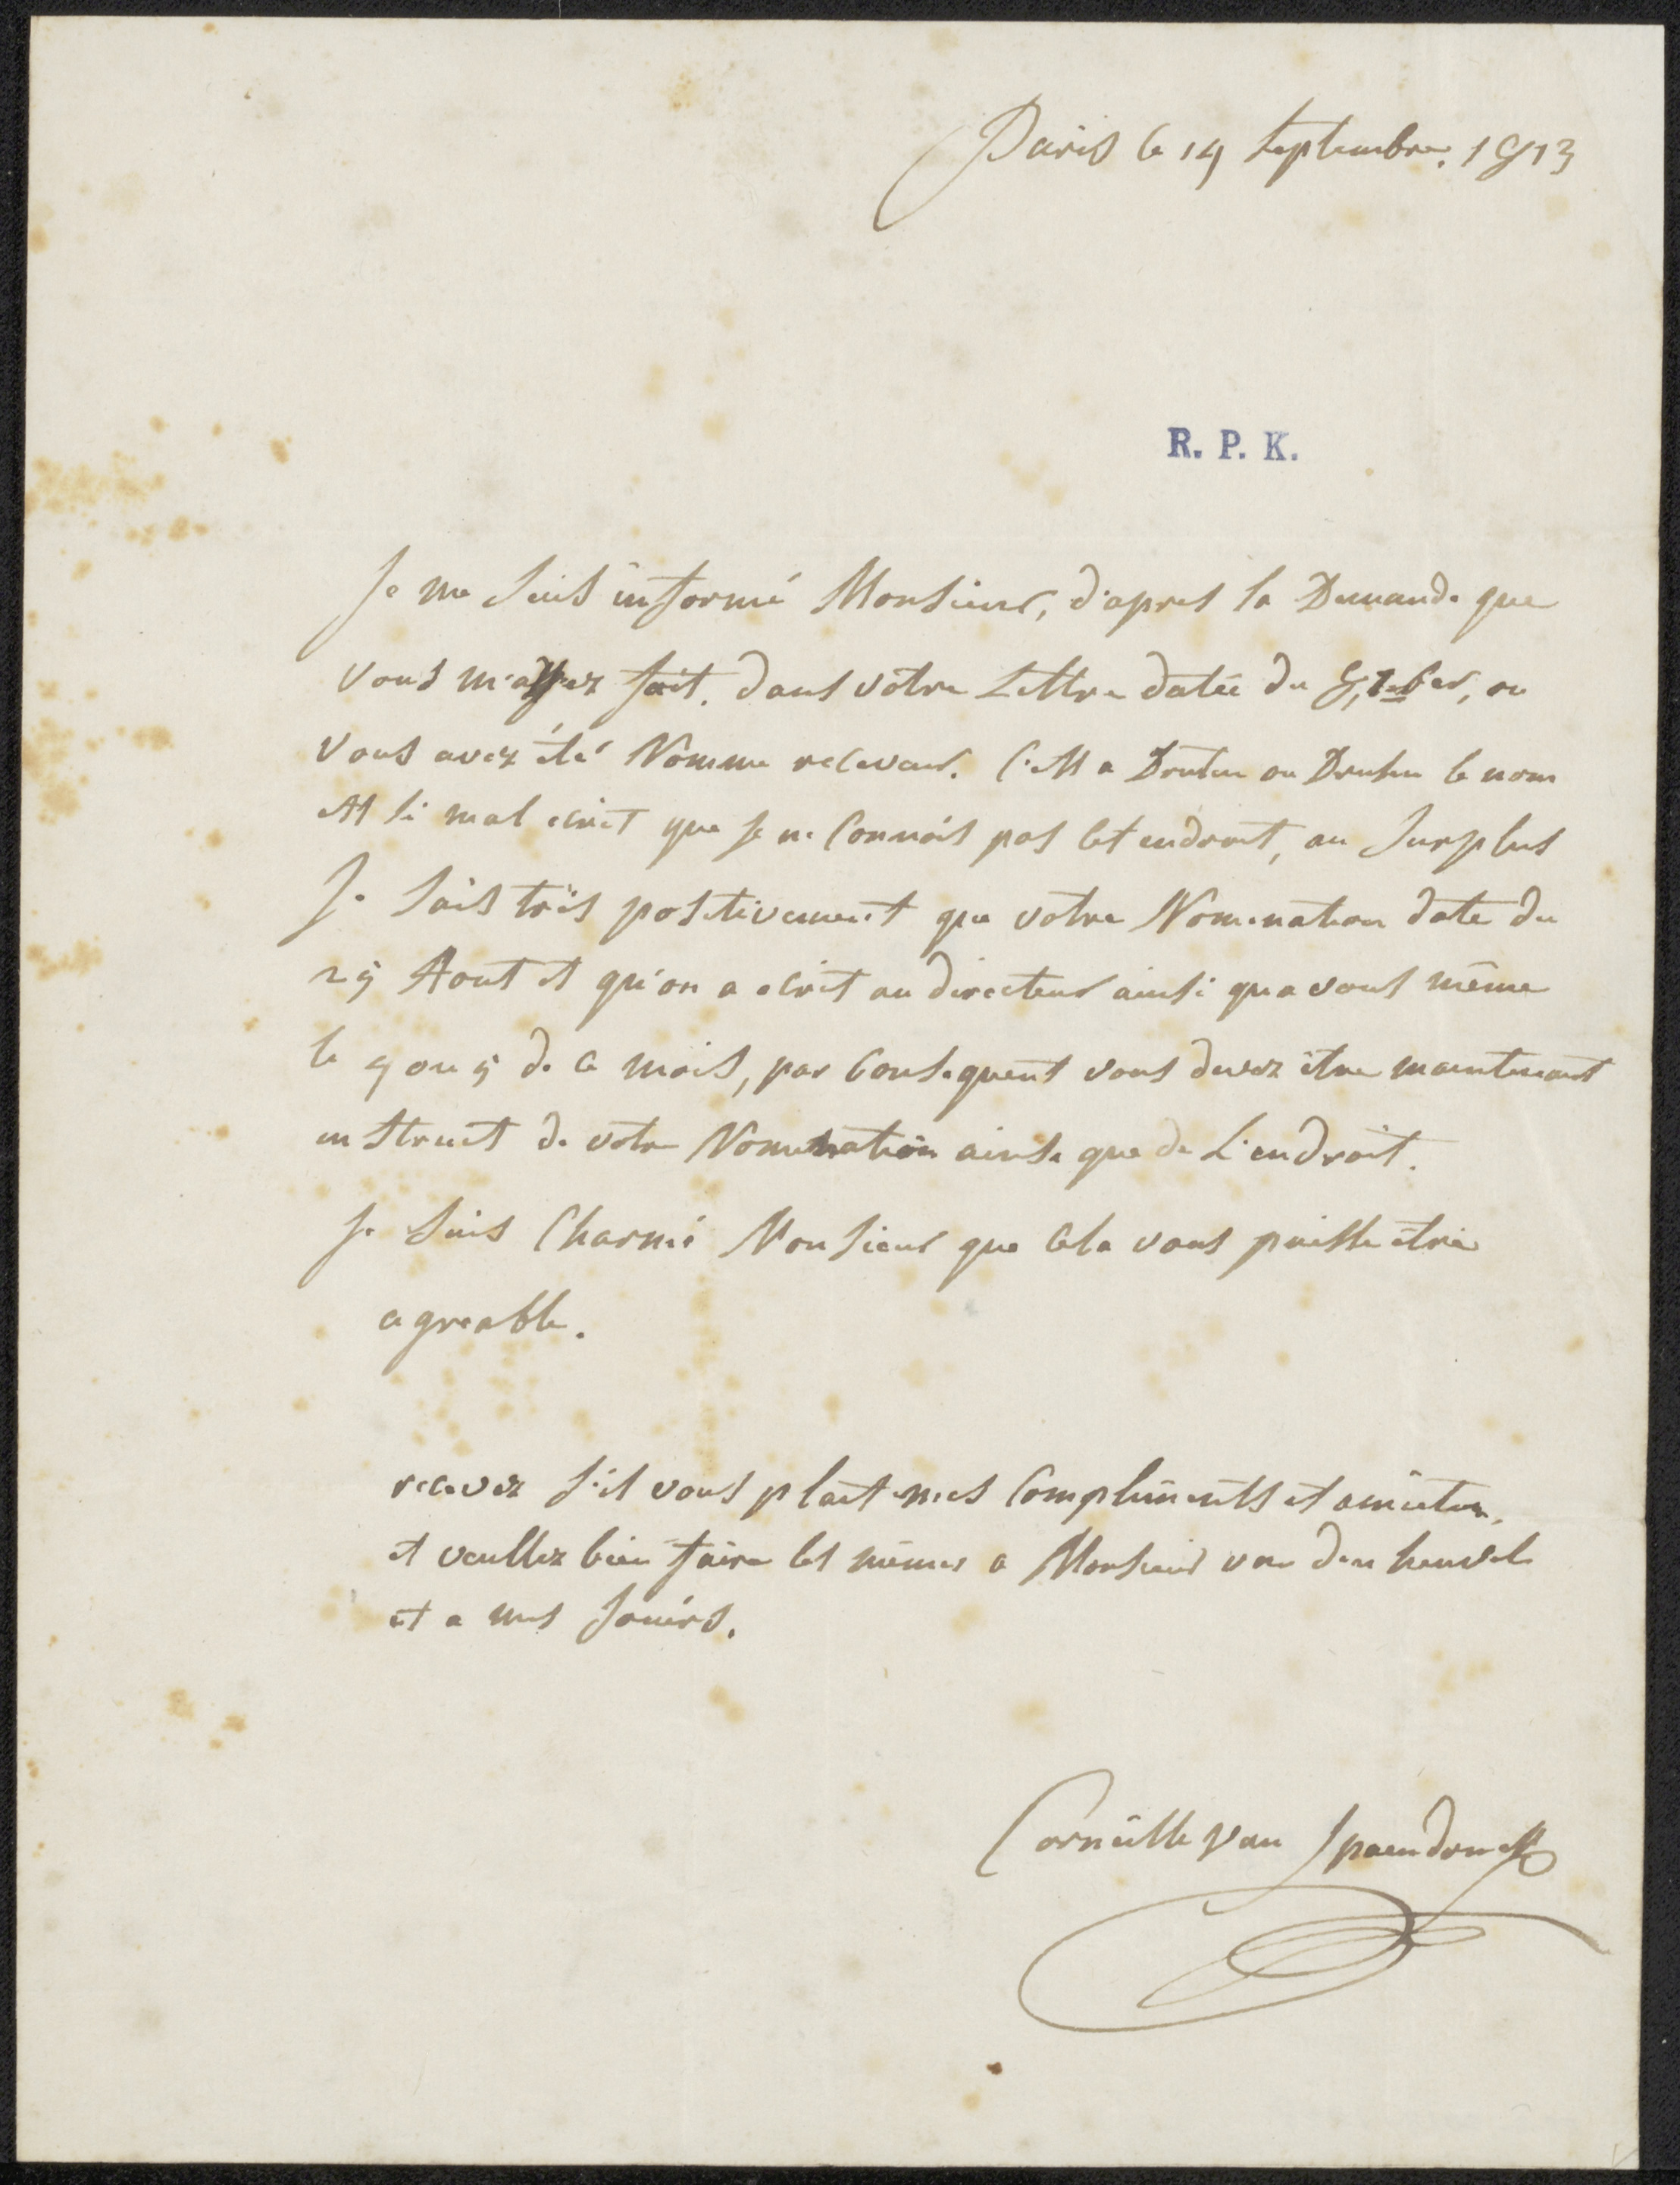 Paris le 14 Septembre. 1813
R. P. K.
Je me suis informé Monsieur, d'apres la Demande que
vous m'avez fait. dans votre Lettre datée du 8, 7ber, ou
vous avez été Nomme receveur. C'est a Druten ou Druten le nom
est si mal ecrit que je ne connois pas cet endroit, au surplus
Je sais très positivement que votre Nomination date du
25 Aout et qu'on a ecrit au directeur ainsi qu a vous même
le 4 ou 5 de ce mois, par consequent vous devez être maintenant
instruit de votre Nomination ainsi que de L'endroit.
Je suis Charmé Monsieur que cela vous puisse être
agreable.
recevez s'il vous plait mes Compliments et amitier,
et veullez bien faire les mêmes a Monsieur van den heuvel
et a mes soeurs.
Corneille van Spaendonck